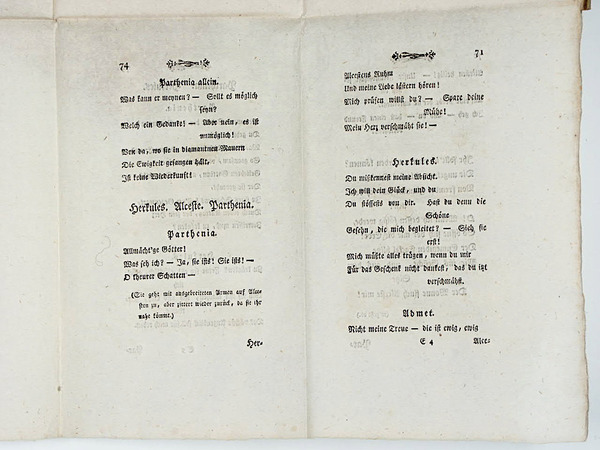 74
Parthenia allein.
Was kann er meynen? — Sollt es möglich
seyn?
Welch ein Gedanke! — Aber nein, es ist
unmöglich!
Von da, wo sie in diamantnen Mauern
Die Ewigkeit gefangen hält,
Ist keine Wiederkunft!
Herkules. Alceste. Parthenia.
Parthenia.
Allmächt'ge Götter!
Was seh ich? — Ja, sie ists! Sie ists! —
O theurer Schatten —
(Sie geht mit ausgebreiteten Armen auf Alce-
sten zu, aber zittert wieder zurück, da sie ihr
nahe kömmt.)
Her-
71
Alcestens Ruhm
Und meine Liebe lästern hören!
Mich prüfen willst du? — Spare deine
Mühe!
Mein Herz verschmäht sie! —
Herkules.
Du mißkennest meine Absicht.
Ich will dein Glück, und du
Du stössests von dir. Hast du denn die
Schöne
Gesehn, die mich begleitet? — Sieh sie
erst!
Mich müßte alles trügen, wenn du mir
Für das Geschenk nicht dankest, das du itzt
verschmähst.
Admet.
Nicht meine Treue — die ist ewig, ewig
E 4
Alce-